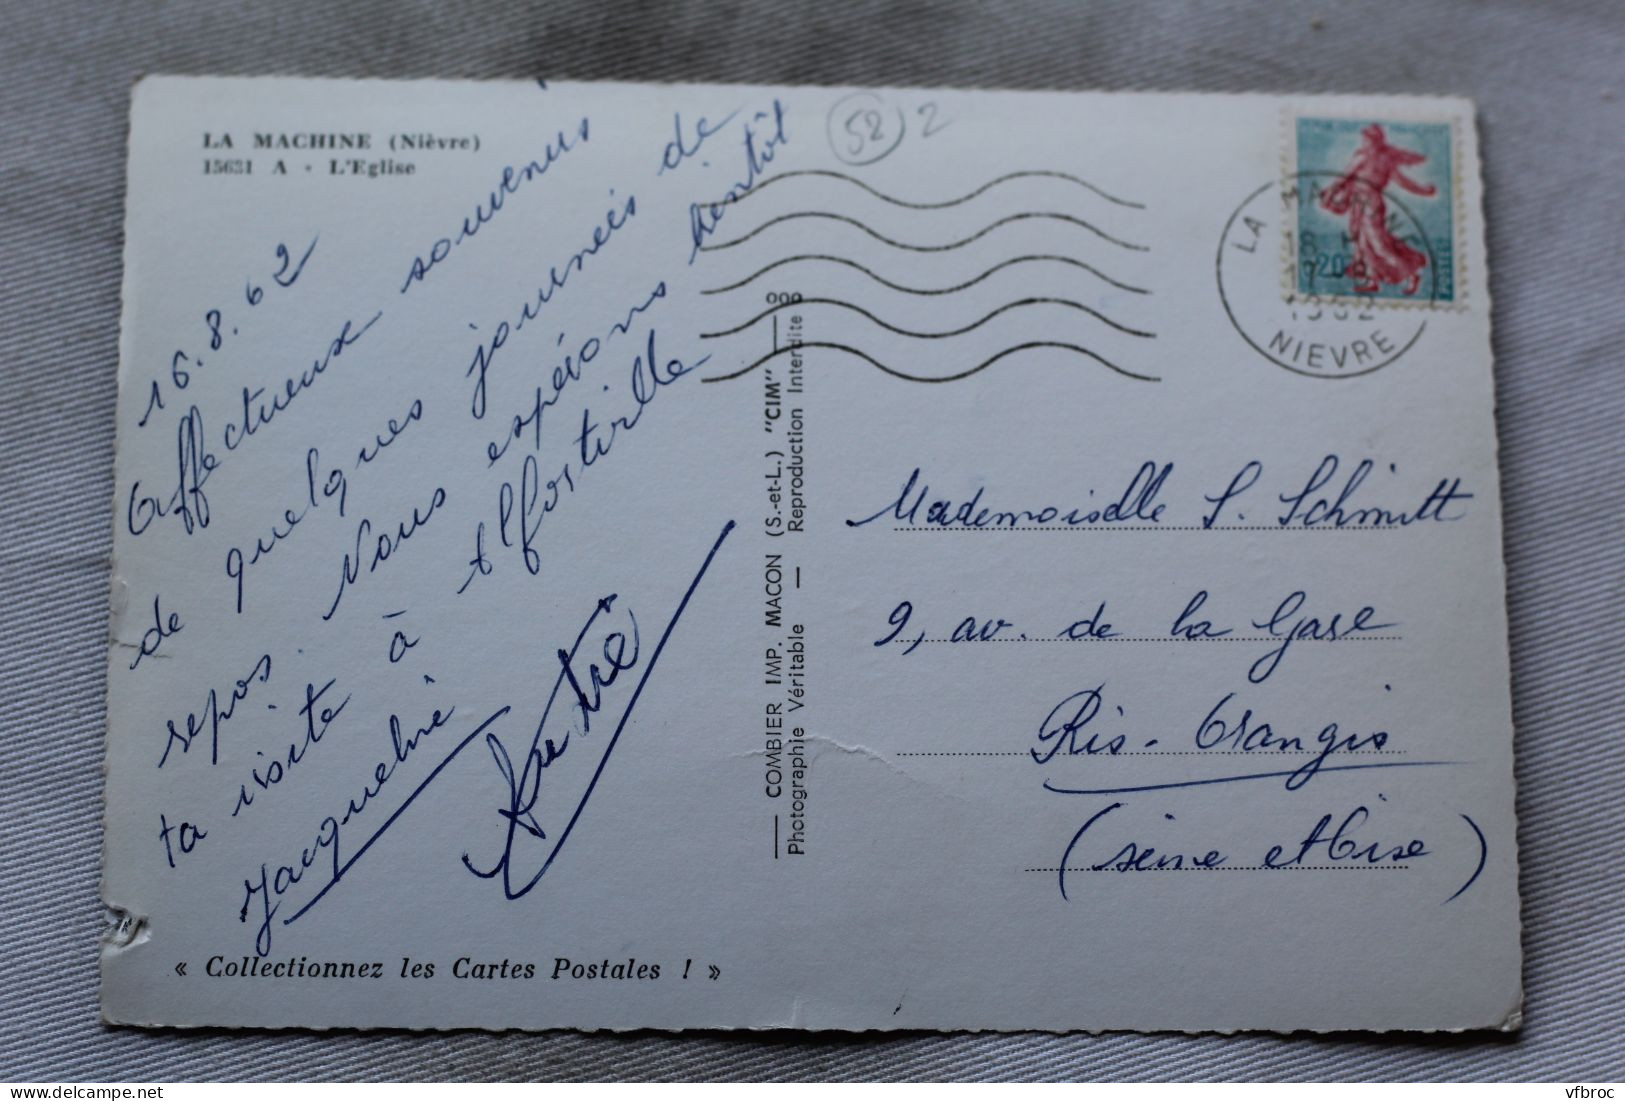 LA MACHINE (Nièvre)
15631 A - L'Eglise
16.8.62
Affectueux souvenirs
de quelques journées de
repos. Nous espérons bientôt
ta visite à Alfostville
Jacqueline
52 2
LA MACHINE
18 H
17-8
1962
NIEVRE
0,20
POSTES
COMBIER IMP. MACON (S.-et-L.) "CIM"
Photographie Véritable — Reproduction Interdite
Mademoiselle S. Schmitt
9, av. de la Gare
Ris-Orangis
(Seine et Oise)
« Collectionnez les Cartes Postales ! »
vfbroc